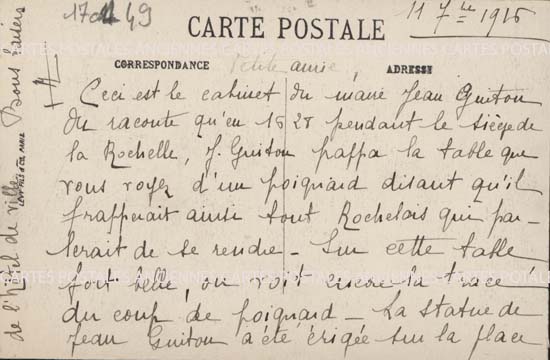 17 49
11 7bre 1915
CARTE POSTALE
CORRESPONDANCE
ADRESSE
Petite amie,
Ceci est le cabinet du maire Jean Guiton
On raconte qu'en 1628 pendant le siège de
la Rochelle, J. Guiton frappa la table que
vous voyez d'un poignard disant qu'il
frapperait ainsi tout Rochelais qui par-
lerait de se rendre - Sur cette table
fort belle, on voit encore la trace
du coup de poignard - La statue de
Jean Guiton a été érigée sur la place
de l'Hôtel de ville
Bons baisers
CARTES POSTALES ANCIENNES